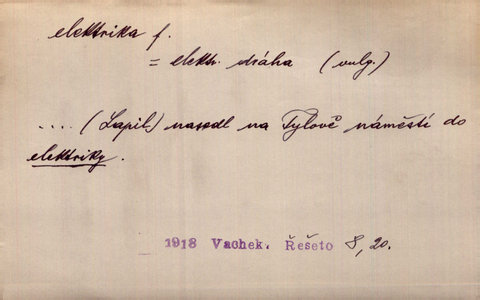 elektrika f.
= elektr. dráha (vulg.)
.... (Lapil) nasedl na Tylově náměstí do
elektriky.
1918 Vachek. Řešeto 8,20.